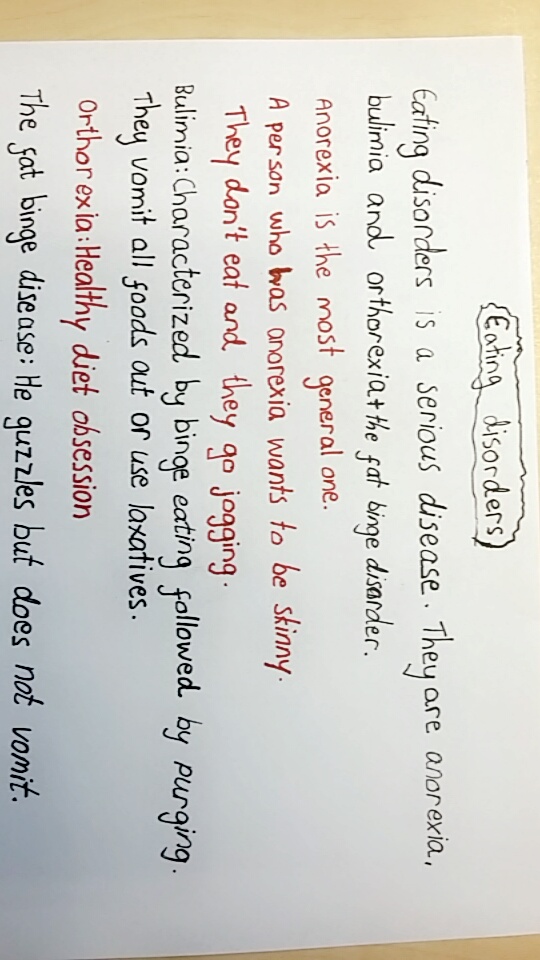 Eating disorders
Eating disorders is a serious disease. They are anorexia,
bulimia and orthorexia+the fat binge disorder.
Anorexia is the most general one.
A person who has anorexia wants to be skinny.
They don't eat and they go jogging.
Bulimia: Characterized by binge eating followed by purging.
They vomit all foods out or use laxatives.
Orthorexia: Healthy diet obsession
The fat binge disease: He guzzles but does not vomit.